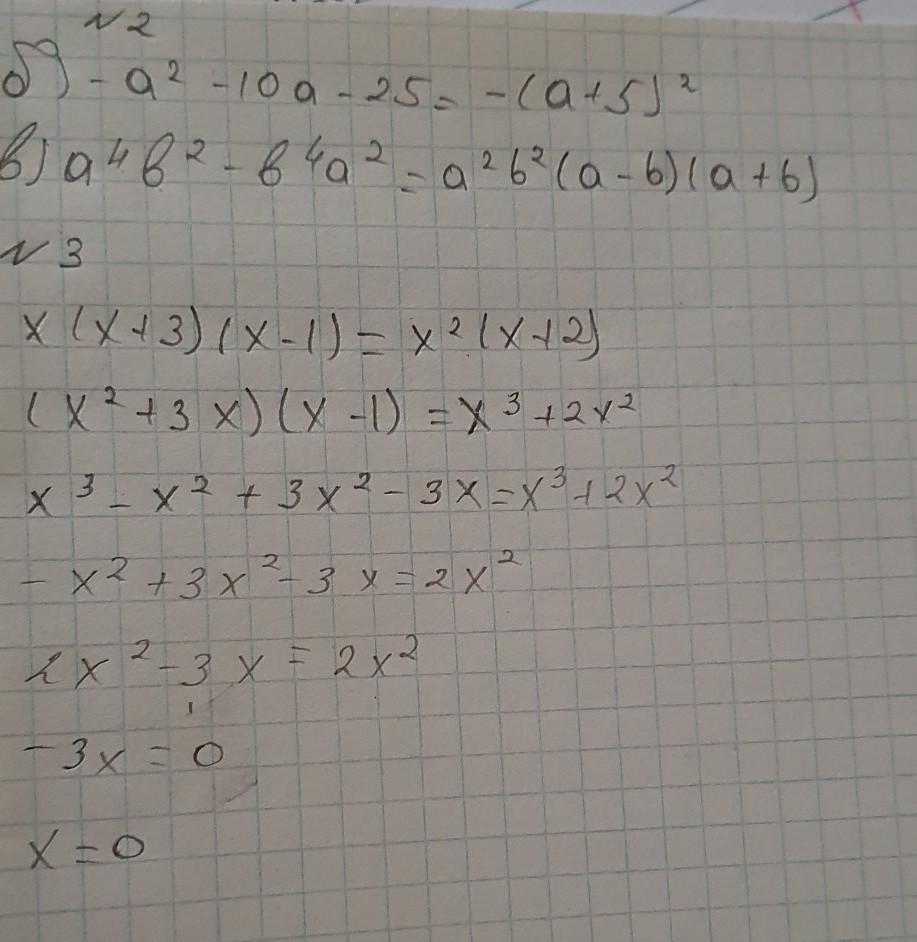 №2
б) -a² -10a -25 = -(a+5)²
в) a⁴b² - b⁴a² = a²b²(a-b)(a+b)
№3
x(x+3)(x-1) = x²(x+2)
(x²+3x)(x-1) = x³+2x²
x³ - x² + 3x² - 3x = x³+2x²
- x² + 3x² - 3x = 2x²
2x² - 3x = 2x²
-3x = 0
x = 0